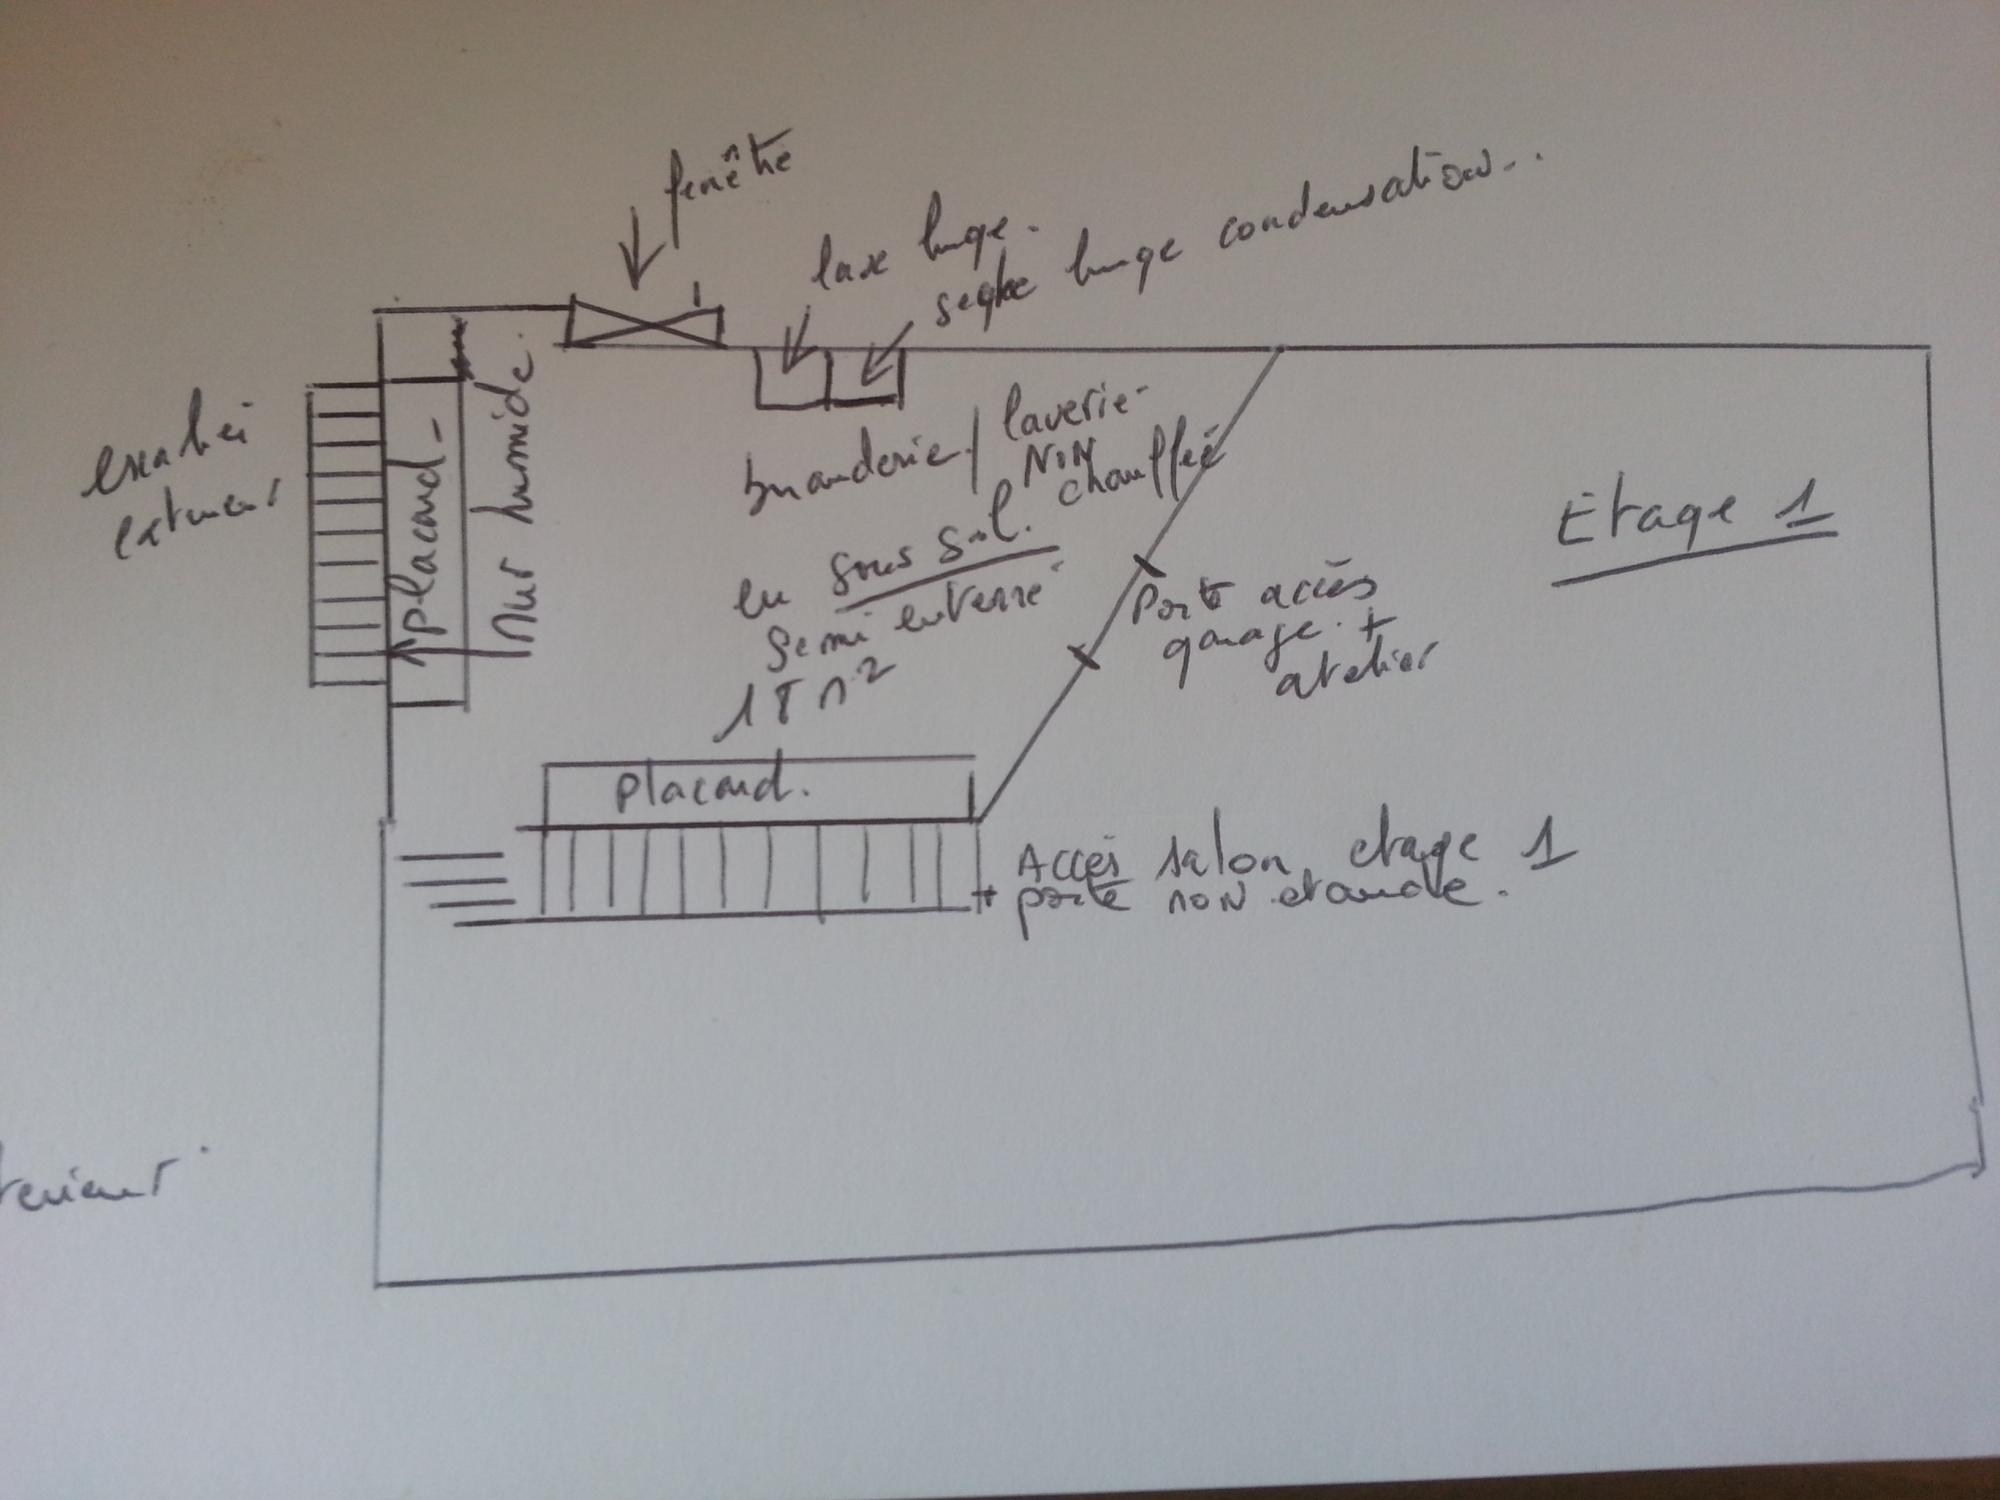 fenêtre
lave linge.
seche linge condensation...
escalier
exterieur
placard -
Mur humide.
buanderie / laverie -
NON
chauffée
en sous sol.
semi enterré
18 m²
Porte accès
garage. +
atelier
Etage 1
placard.
Accès salon etage 1
+ porte non etanche.
terieur